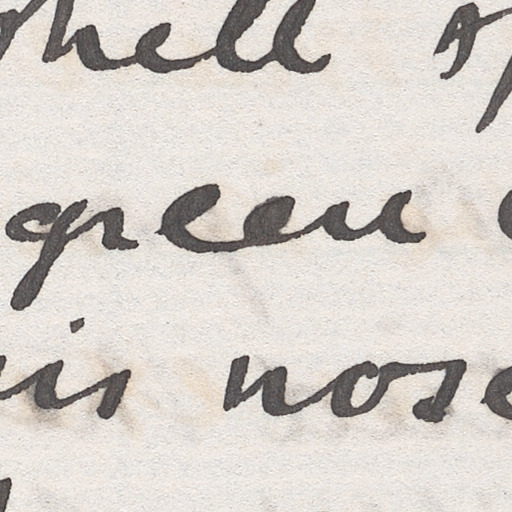 shell sp
green
is nose